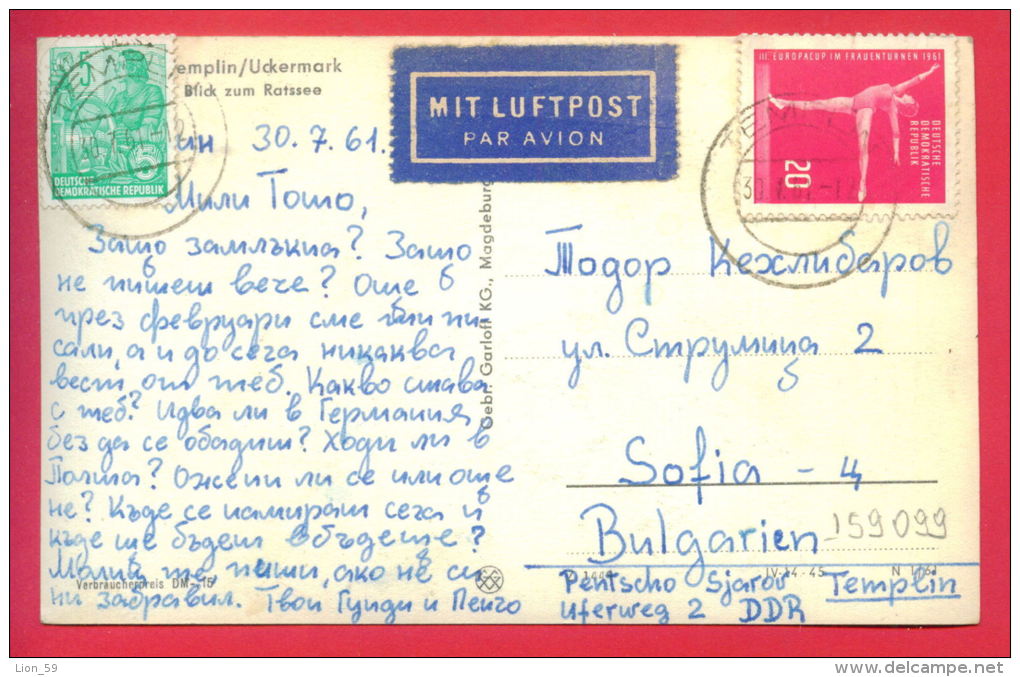 emplin/Uckermark
Blick zum Ratssee
5
DEUTSCHE
DEMOKRATISCHE REPUBLIK
MIT LUFTPOST
PAR AVION
III. EUROPACUP IM FRAUENTURNEN 1961
DEUTSCHE
DEMOKRATISCHE
REPUBLIK
20
ин 30.7.61.
Мили Тошо,
Защо замлъкна? Защо
не пишеш вече? Още
през февруари сме ти пи
сали, а и до сега никаква
вест от теб. Какво става
с теб? Идва ли в Германия,
без да се обадиш? Ходи ли в
Полша? Ожени ли се или още
не? Къде се намираш сега и
къде ще бъдеш в бъдеще?
Молим те, пиши, ако не си
ни забравил. Твои Гунди и Пенчо
Verbraucherpreis DM -,15
Gebr. Garloff KG., Magdeburg
Тодор Кехлибаров
ул. Струмица 2
Sofia - 4
Bulgarien
159099
IV-14-45
Pentscho Sjarov Templin
Uferweg 2 DDR
Lion_59
www.delcampe.net